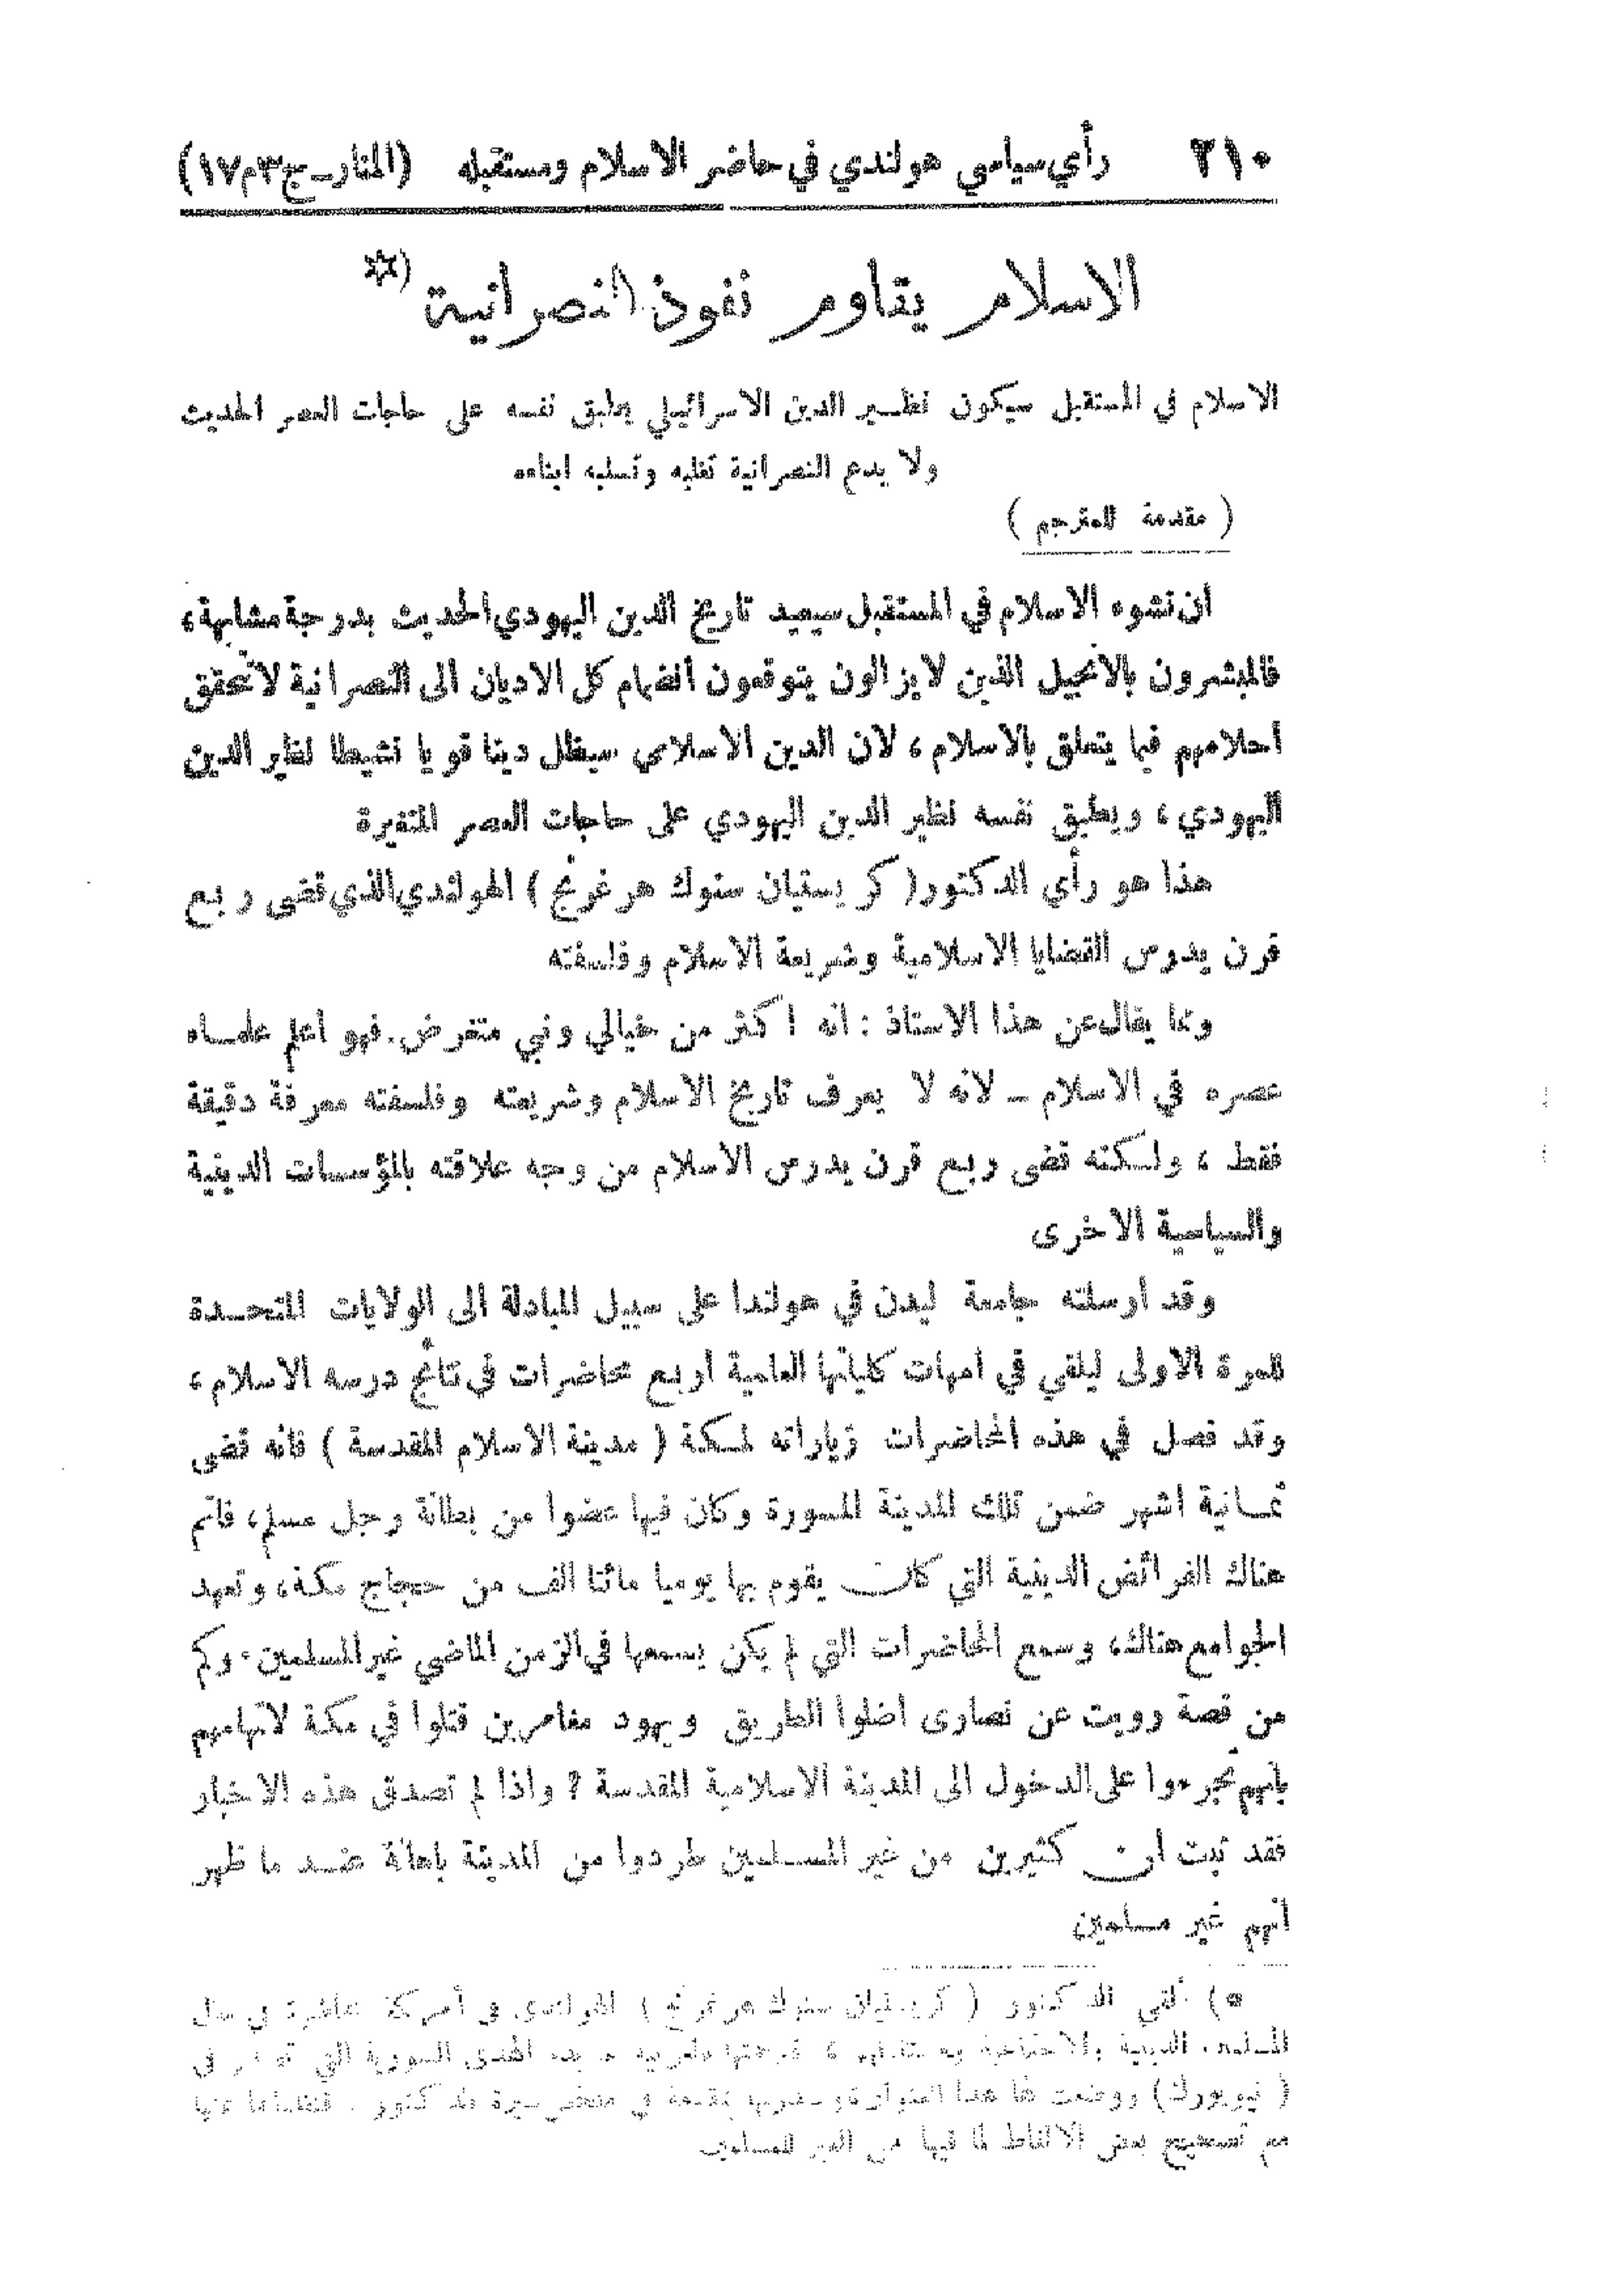 ٢١٠ رأي سياسي هولندي في حاضر الاسلام ومستقبله (المنار ـ ج٣م١٧)
الاسلام يقاوم نفوذ النصرانية (*
الاسلام في المستقبل سيكون نظير الدين الاسرائيلي يطبق نفسه على حاجات العصر الحديث
ولا يدع النصرانية تغلبه وتسلبه ابناءه
( مقدمة للمترجم )
ان نشوء الاسلام في المستقبل سيعيد تاريخ الدين اليهودي الحديث بدرجة مشابهة ،
فالمبشرون بالانجيل الذين لا يزالون يتوقعون انضمام كل الاديان الى النصرانية لا تتحقق
احلامهم فيما يتعلق بالاسلام ، لان الدين الاسلامي سيظل دينا قويا نشيطا نظير الدين
اليهودي ، ويطبق نفسه نظير الدين اليهودي على حاجات العصر المتغيرة
هذا هو رأي الدكتور ( كريستيان سنوك هرغرنج ) الهولندي الذي قضى ربع
قرن يدرس القضايا الاسلامية وشريعة الاسلام وفلسفته
ومما يقال عن هذا الاستاذ : انه اكثر من خيالي وني متغرض . فهو اعلم علماء
عصره في الاسلام ـ لانه لا يعرف تاريخ الاسلام وشريعته وفلسفته معرفة دقيقة
فقط ، ولكنه قضى ربع قرن يدرس الاسلام من وجه علاقته بالمؤسسات الدينية
والسياسية الاخرى
وقد ارسلته جامعة ليدن في هولندا على سبيل المبادلة الى الولايات المتحدة
للمرة الاولى ليلقي في امهات كلياتها العلمية اربع محاضرات في نتائج درسه الاسلام ،
وقد فصل في هذه المحاضرات زياراته لمكة ( مدينة الاسلام المقدسة ) فانه قضى
ثمانية اشهر ضمن تلك المدينة المسورة وكان فيها عضوا من بطانة رجل مسلم ، فاتم
هناك الفرائض الدينية التي كان يقوم بها يوميا مائتا الف من حجاج مكة ، وتعهد
الجوامع هناك ، وسمع المحاضرات التي لم يكن يسمعها في الزمن الماضي غير المسلمين . وكم
من قصة رويت عن نصارى اضلوا الطريق ويهود مغامرين قتلوا في مكة لاتهامهم
بأنهم تجرءوا على الدخول الى المدينة الاسلامية المقدسة ؟ واذا لم تصدق هذه الاخبار
فقد ثبت ان كثيرين من غير المسلمين طردوا من المدينة باهانة عند ما ظهر
انهم غير مسلمين
*) القى الدكتور ( كريستيان سنوك هرغرنج ) الهولندي في أميركة محاضرة في حال
المسلمين الدينية والاجتماعية ، فترجمتها بالعربية جريدة الهدى السورية التي تصدر في
( نيويورك ) ووضعت لها هذا العنوان مقدمة في مختصر سيرة الدكتور . فنقلناها عنها
مع تصحيح بعض الالفاظ لما فيها من العبر للمسلمين